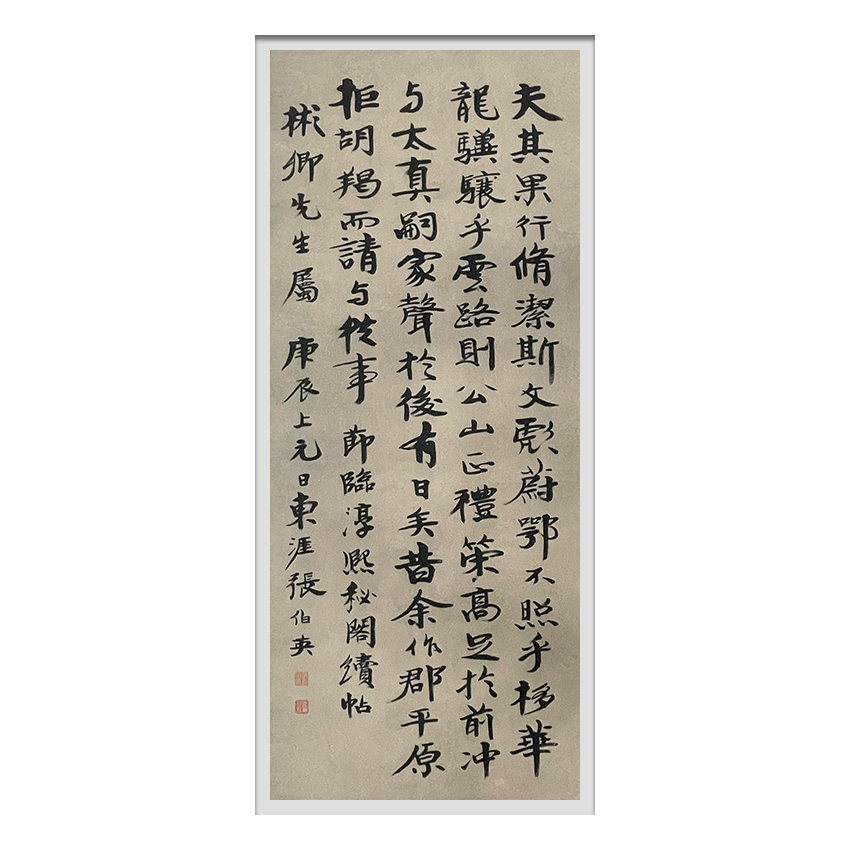 夫其果行脩潔斯文彪蔚鄂不照乎棣華
龍驥驤乎雲路則公山正禮策高足於前冲
与太真嗣家聲於後有日矣昔余作郡平原
拒胡羯而請与從事 節臨淳熙秘閣續帖
彬卿先生屬 庚辰上元日東涯張伯英